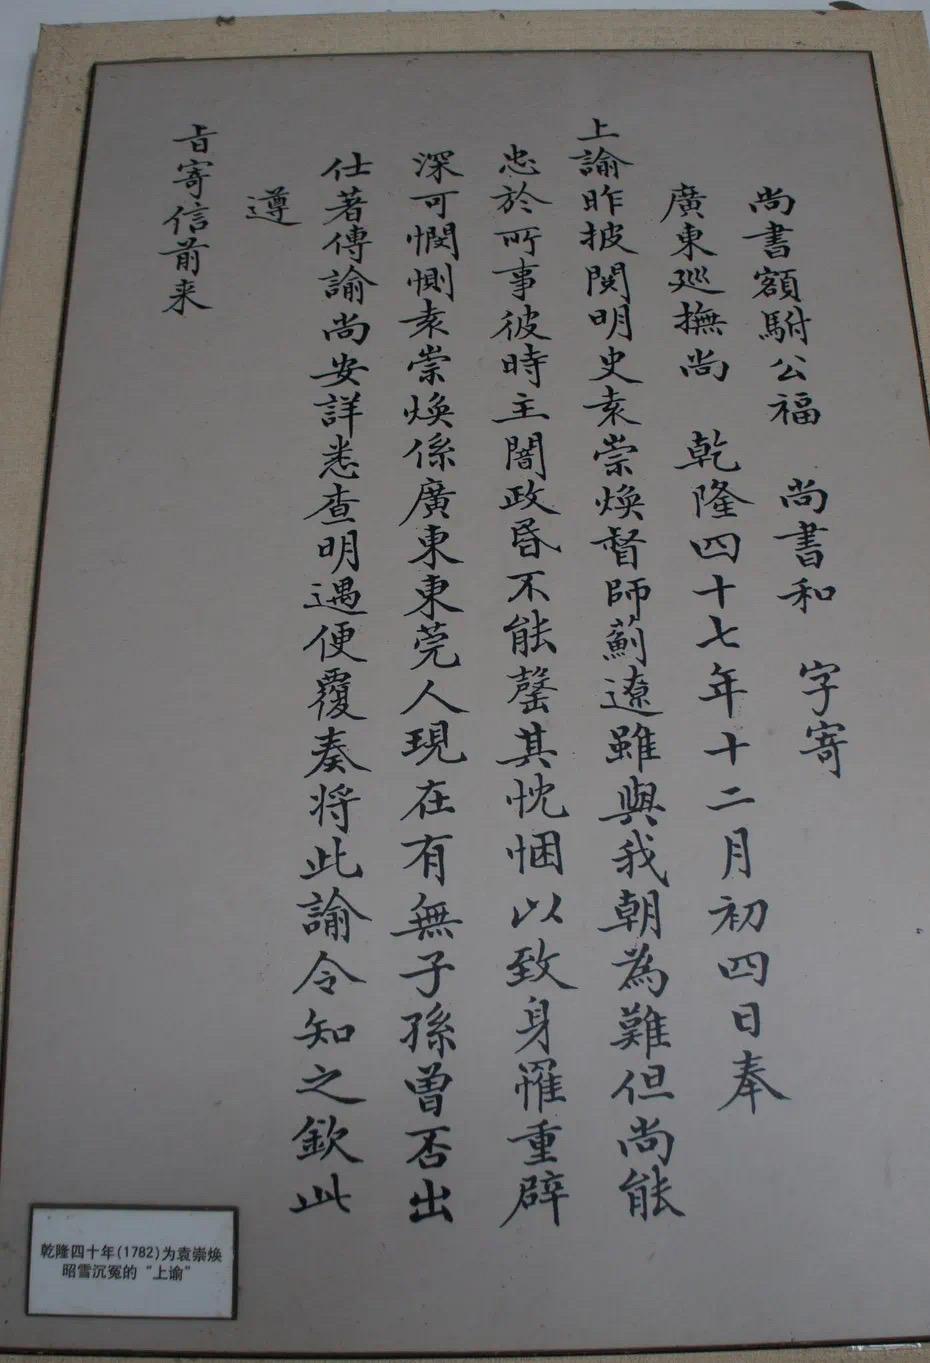 尚書額駙公福　尚書和　字寄
廣東巡撫尚　乾隆四十七年十二月初四日奉
上諭昨披閱明史袁崇煥督師薊遼雖與我朝為難但尚能
忠於所事彼時主闇政昏不能罄其忱悃以致身罹重辟
深可憫惻袁崇煥係廣東東莞人現在有無子孫曾否出
仕著傳諭尚安詳悉查明遇便覆奏將此諭令知之欽此
遵
旨寄信前来
乾隆四十年(1782)为袁崇焕
昭雪沉冤的“上谕”